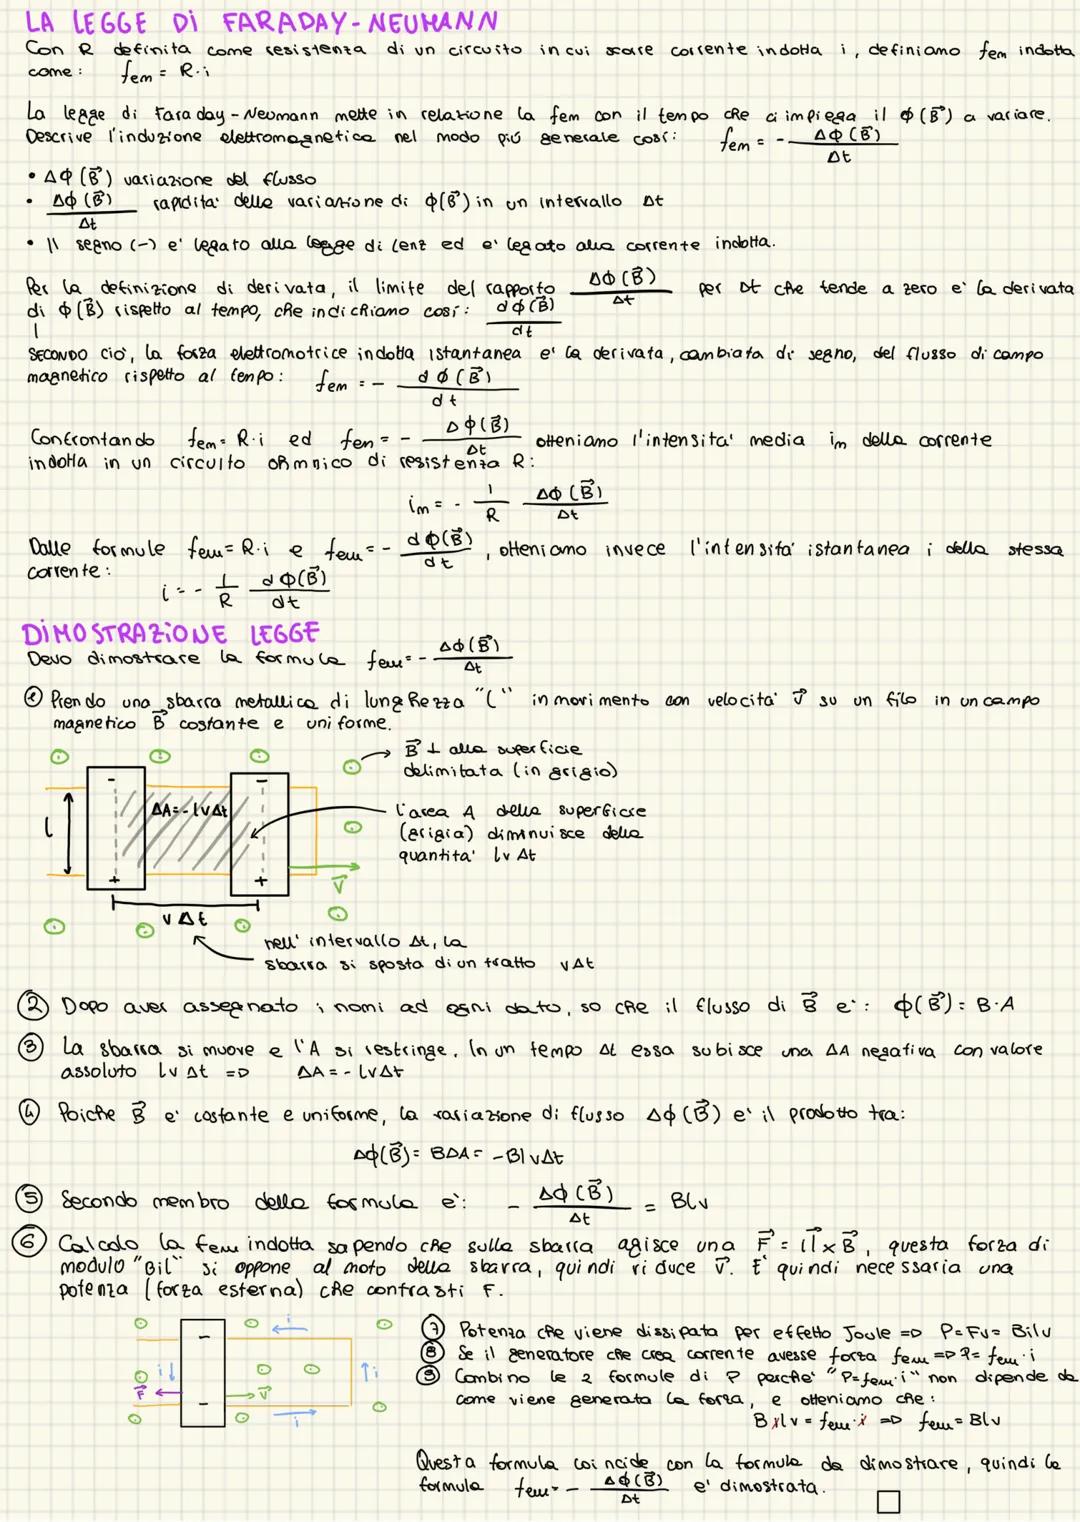 LA LEGGE DI FARADAY-NEUMANN
Con R definita come resistenza di un circuito in cui scorre corrente indotta i, definiamo fem indotta
come: fem = R·i
La legge di Faraday-Neumann mette in relazione la fem con il tempo che ci impiega il φ(B⃗) a variare.
Descrive l'induzione elettromagnetica nel modo più generale così: fem = - ΔΦ(B⃗)/Δt
• ΔΦ(B⃗) variazione del flusso
• ΔΦ(B⃗)/Δt rapidita' della variazione di φ(B⃗) in un intervallo Δt
• Il segno (-) e' legato alla legge di Lenz ed e' legato alla corrente indotta.
Per la definizione di derivata, il limite del rapporto ΔΦ(B⃗)/Δt per Δt che tende a zero e' la derivata
di φ(B⃗) rispetto al tempo, che indichiamo così: dφ(B⃗)/dt
SECONDO ciò, la forza elettromotrice indotta istantanea e' la derivata, cambiata di segno, del flusso di campo
magnetico rispetto al tempo: fem = - dφ(B⃗)/dt
Confrontando fem = R·i ed fem = - Δφ(B⃗)/Δt otteniamo l'intensita' media im della corrente
indotta in un circuito ohmnico di resistenza R:
im = - 1/R ΔΦ(B⃗)/Δt
Dalle formule fem = R·i e fem = - dφ(B⃗)/dt, otteniamo invece l'intensita' istantanea i della stessa
corrente:
i = - 1/R dΦ(B⃗)/dt
DIMOSTRAZIONE LEGGE
Devo dimostrare la formula fem = - ΔΦ(B⃗)/Δt
① Prendo una sbarra metallica di lunghezza "l" in movimento con velocita' v⃗ su un filo in un campo
magnetico B⃗ costante e uniforme.
B⃗ ⊥ alla superficie
delimitata (in grigio)
- -
l
ΔA = - lvΔt
L'area A della superficie
(grigia) diminuisce della
quantita' lv Δt
+ +
v⃗
v Δt
nell' intervallo Δt, la
sbarra si sposta di un tratto vΔt
② Dopo aver assegnato i nomi ad ogni dato, so che il flusso di B⃗ e': φ(B⃗) = B·A
③ La sbarra si muove e l'A si restringe. In un tempo Δt essa subisce una ΔA negativa con valore
assoluto lv Δt => ΔA = - lvΔt
④ Poiche B⃗ e' costante e uniforme, la variazione di flusso Δφ(B⃗) e' il prodotto tra:
Δφ(B⃗) = BΔA = -BlvΔt
⑤ Secondo membro della formula è: - Δφ(B⃗)/Δt = Blv
⑥ Calcolo la fem indotta sapendo che sulla sbarra agisce una F⃗ = i l⃗ x B⃗, questa forza di
modulo "Bil" si oppone al moto della sbarra, quindi riduce v⃗. E' quindi necessaria una
potenza (forza esterna) che contrasti F.
- i
i i
F⃗ v⃗
- i
⑦ Potenza che viene dissipata per effetto Joule => P = Fv = Bilv
⑧ Se il generatore che crea corrente avesse forza fem => P = fem·i
⑨ Combino le 2 formule di P perche' "P = fem·i" non dipende da
come viene generata la forza, e otteniamo che:
Bilv = fem·i => fem = Blv
Questa formula coincide con la formula da dimostrare, quindi la
formula fem = - Δφ(B⃗)/Δt e' dimostrata.